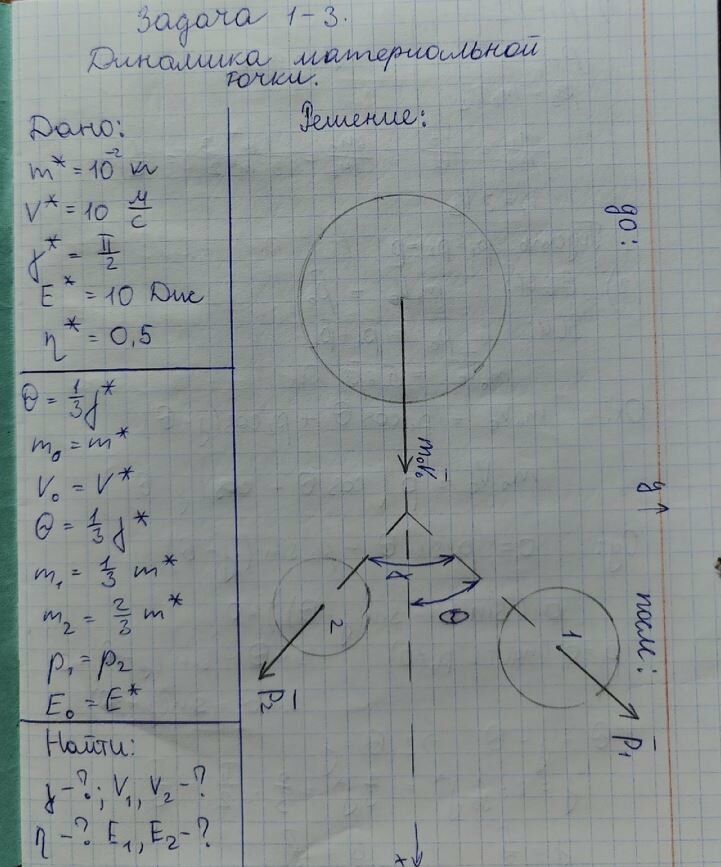 Задача 1-3.
Динамика материальной
точки.
Дано:
m* = 10⁻² кг
V* = 10 м/с
γ* = π/2
E* = 10 Дж
η* = 0,5
θ = 1/3 γ*
m₀ = m*
V₀ = V*
θ = 1/3 γ*
m₁ = 1/3 m*
m₂ = 2/3 m*
p₁ = p₂
E₀ = E*
Найти:
γ - ?; V₁, V₂ - ?
η - ? E₁, E₂ - ?
Решение:
до:
m₀V̄₀
y
после:
γ
θ
1
2
p̄₁
p̄₂
x